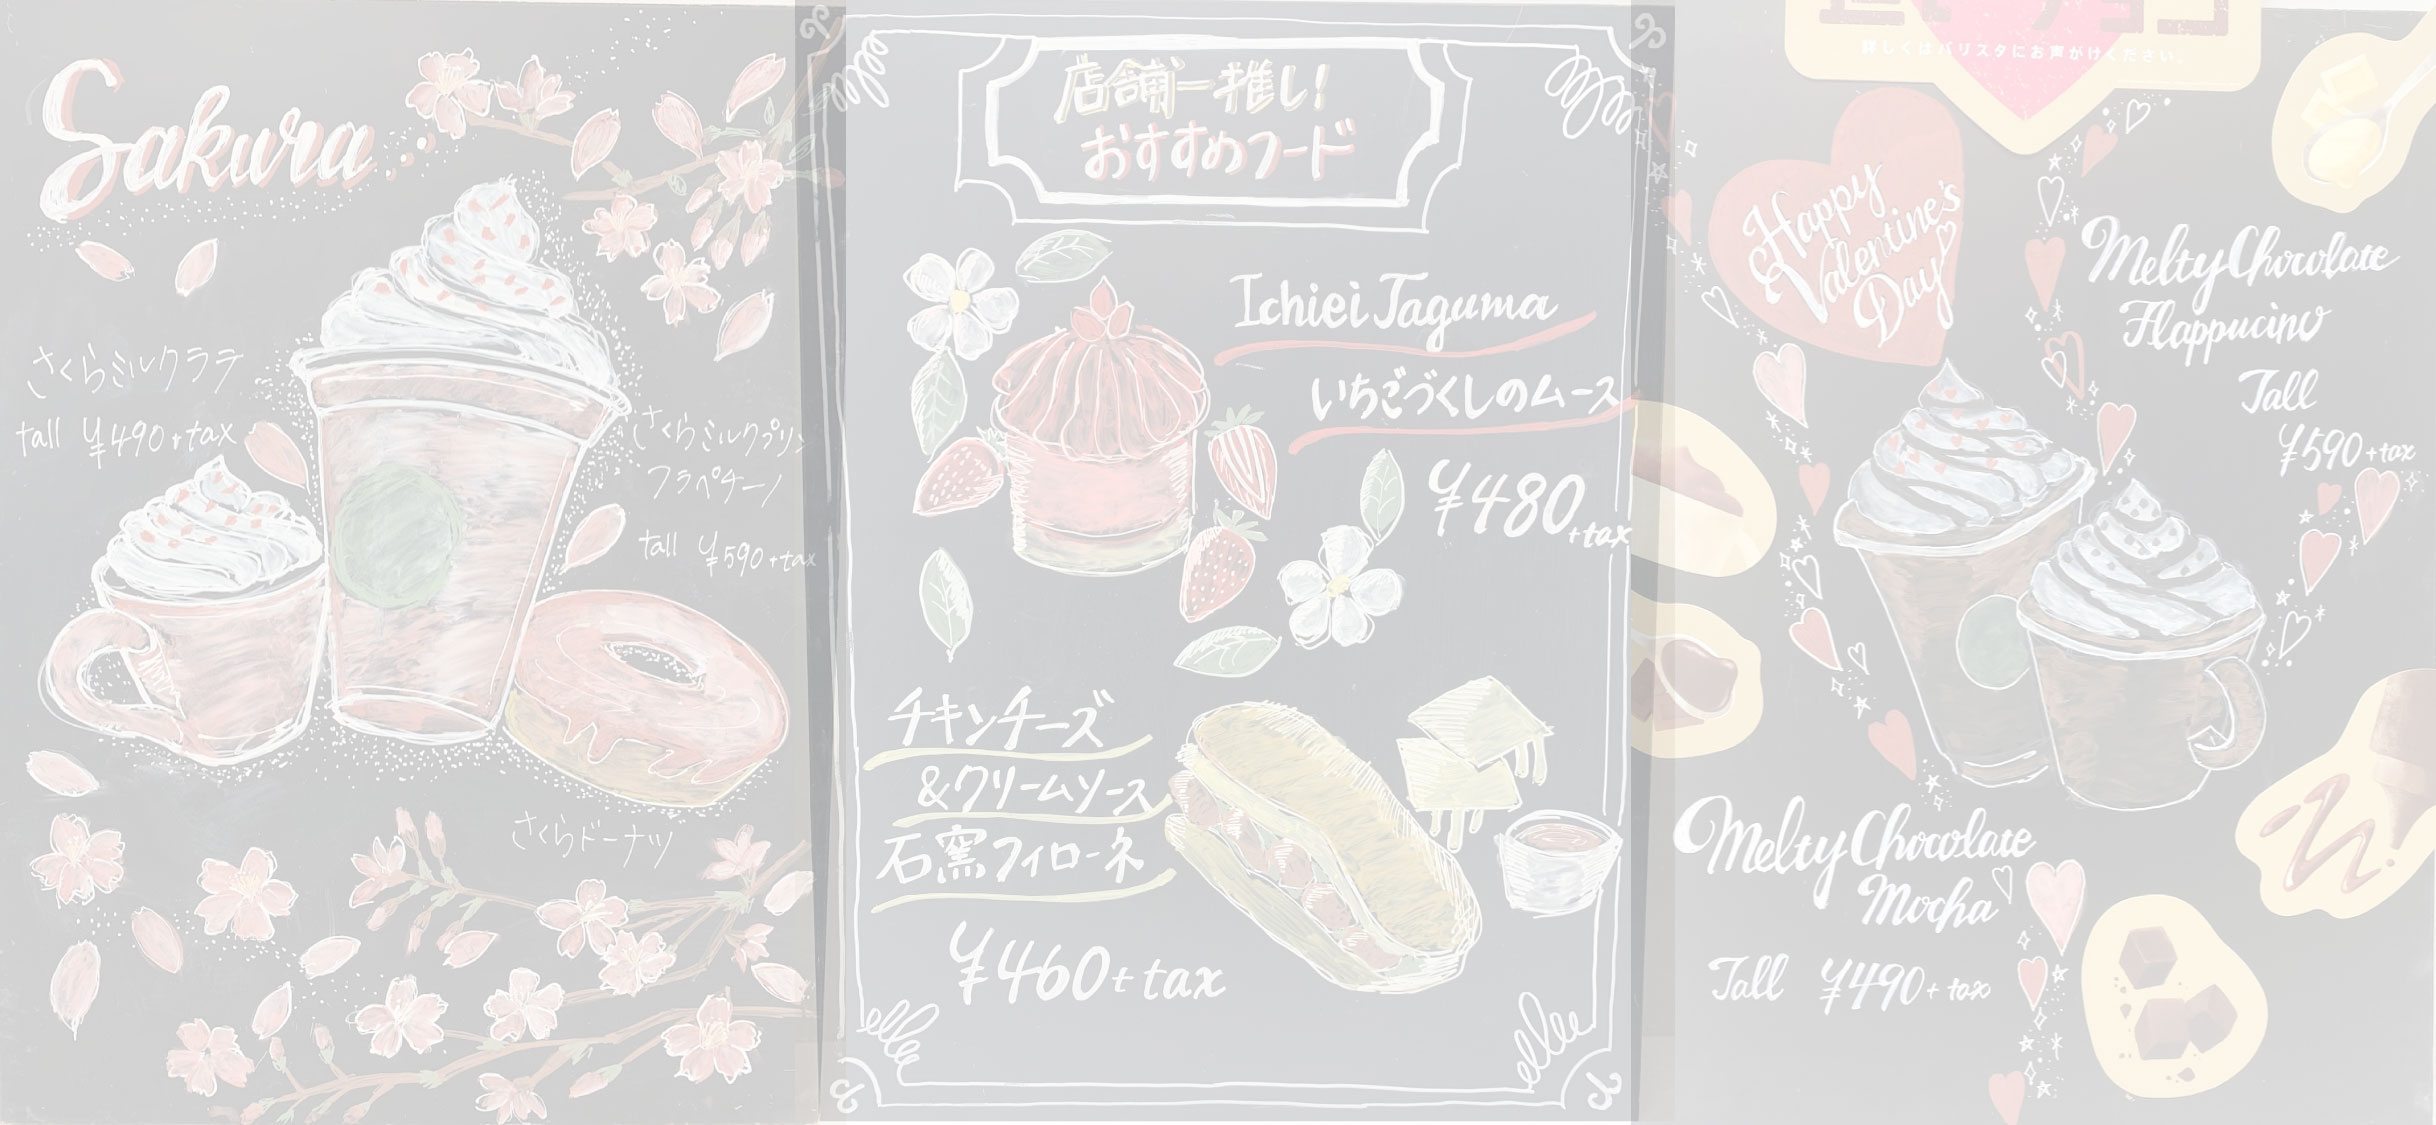 Sakura
さくらミルクラテ
tall ¥490+tax
さくらミルクプリン
フラペチーノ
tall ¥590+tax
さくらドーナツ
店舗一推し!
おすすめフード
Ichiei Taguma
いちごづくしのムース
¥480+tax
チキンチーズ
&クリームソース
石窯フィローネ
¥460+tax
詳しくはバリスタにお声がけください。
Happy
Valentine's
Day
Melty Chocolate
Flappucino
Tall
¥590+tax
Melty Chocolate
Mocha
Tall ¥490+tax